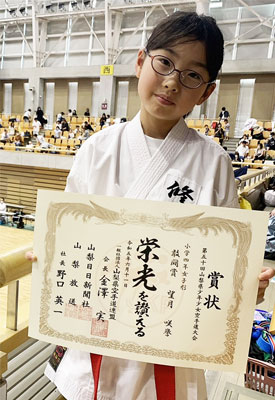 西
賞状
第五十回山梨県少年少女空手道大会
小学四年女子形
敢闘賞 望月
栄光を讃える
令和五年六月十一日
一般社団法人山梨県空手道連盟
会長 金澤 実
山梨日日新聞社
山梨放送
社長 野口英一